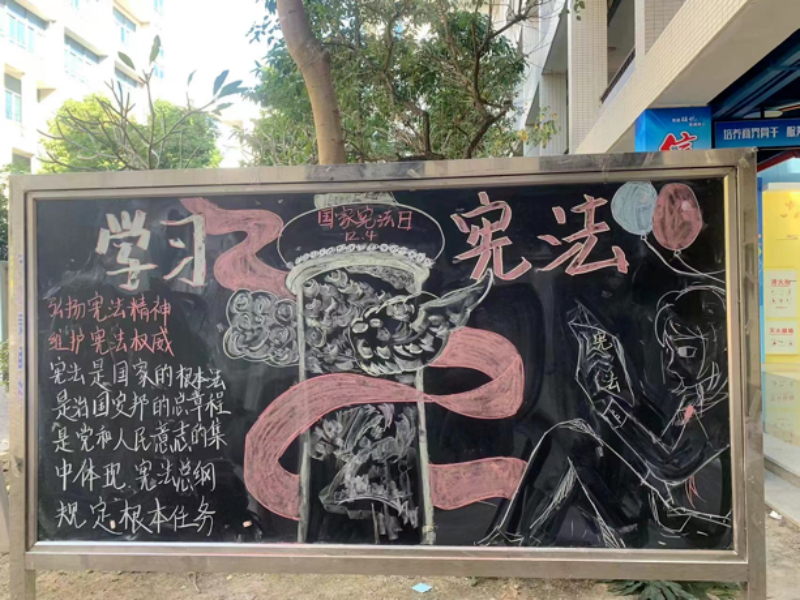 学习
国家宪法日
12.4
宪法
弘扬宪法精神
维护宪法权威
宪法是国家的根本法
是治国安邦的总章程
是党和人民意志的集
中体现.宪法总纲
规定根本任务
宪法
培养商界骨干